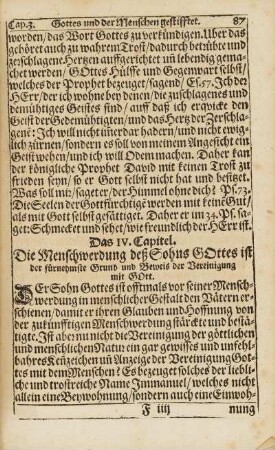 Cap.3. Gottes und der Menschen gestifftet. 87
worden/das Wort Gottes zu verkündigen. Uber das
gehöret auch zu wahrem Trost/dadurch betrübte und
zerschlagene Hertzen auffgerichtet uñ lebendig gema-
chet werden/ GOttes Hülffe und Gegenwart selbst/
welches der Prophet bezeuget/sagend/ Es. 57. Ich der
HErr/ der ich wohne bey denen/die zuschlagenes und
demühtiges Geistes sind/ auff daß ich erqvicke den
Geist der Gedemühtigten/ und das Hertz der Zerschla-
gene: Ich will nicht im̃erdar hadern/ und nicht ewig-
lich zürnen/sondern es soll von meinem Angesicht ein
Geist wehen/ und ich will Odem machen. Daher kan
der königliche Prophet David mit keinen Trost zu
frieden seyn/ so er Gott selbst nicht hat und besitzet.
Was soll mir/saget er/ der Himmel ohne dich? Ps.73.
Die Seelen der Gottfürchtige werden mit keine Gut/
als mit Gott selbst gesättiget. Daher er im 34. Ps. sa-
get: Schmecket und sehet/wie freundlich der HErr ist.
Das IV. Capitel.
Die Menschwerdung deß Sohns GOttes ist
der fürnehmste Grund und Beweis der Vereinigung
mit GOtt.
DEr Sohn Gottes ist offtmals vor seiner Mensch-
werdung in menschlicher Gestalt den Vätern er-
schienen/damit er ihren Glauben und Hoffnung von
der zukünfftigen Menschwerdung stärckte und bestä-
tigte. Ist aber nicht die Vereinigung der göttlichen
und menschlichen Natur ein gar gewisses und unfehl-
bahres Keñzeichen uñ Anzeige der Vereinigung Got-
tes mit dem Menschen? Es bezeuget solches der liebli-
che und trostreiche Name Immanuel/ welches nicht
allein eine Beywohnung/ sondern auch eine Einwoh-
F iiij nung